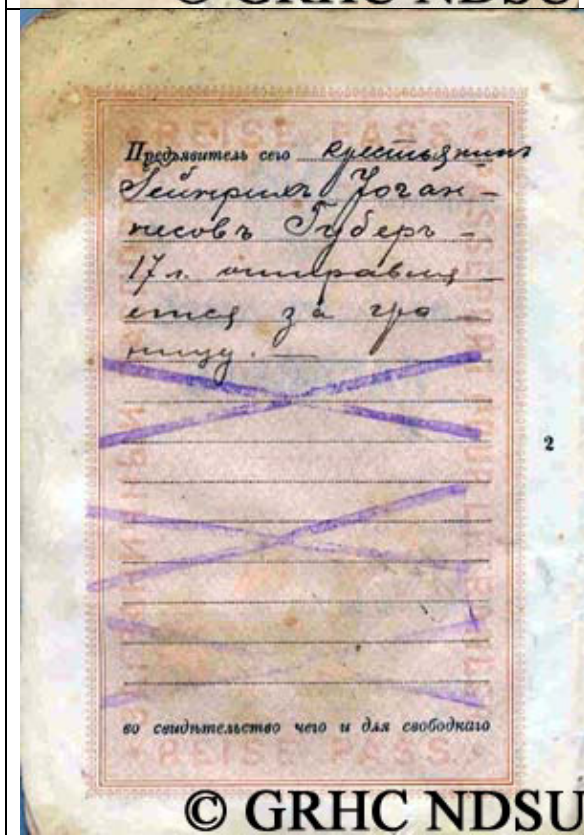 © GRHC NDSU
REISE PASS
Предъявитель сего крестьянинъ
Гейнрихъ Иоган-
несовъ Губеръ -
17 л. отправля
ется за гра
ницу. —
2
во свидѣтельство чего и для свободнаго
REISE PASS
© GRHC NDSU